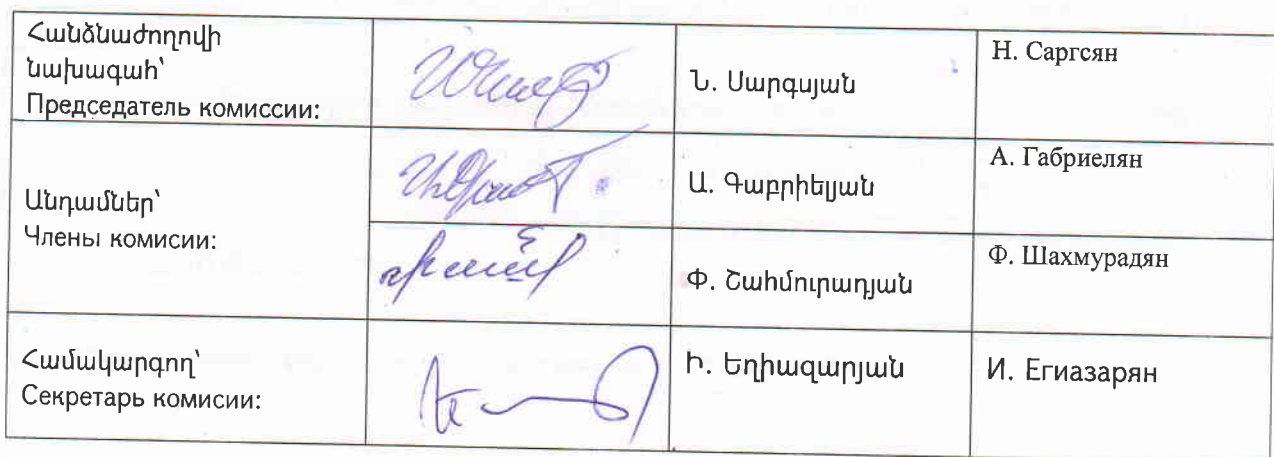 Հանձնաժողովի
նախագահ՝
Председатель комиссии:
Ն. Սարգսյան
Н. Саргсян
Անդամներ՝
Члены комисии:
Ա. Գաբրիելյան
А. Габриелян
Փ. Շահմուրադյան
Ф. Шахмурадян
Համակարգող՝
Секретарь комисии:
Ի. Եղիազարյան
И. Егиазарян